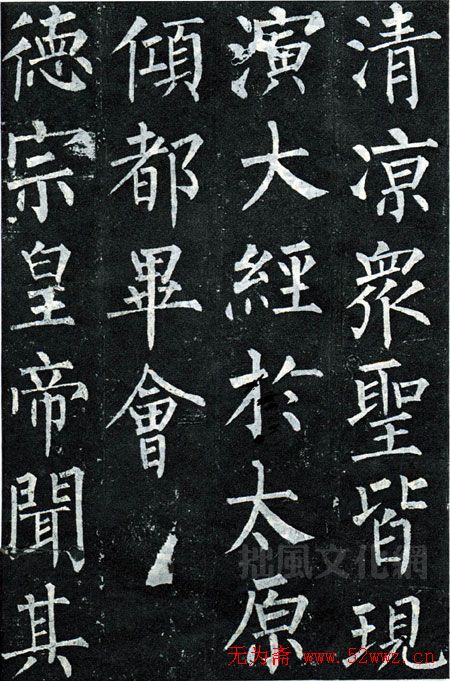 清涼衆聖皆現
演大經於太原
傾都畢會
德宗皇帝聞其
拙風文化網
无为斋 www.52wwz.cn